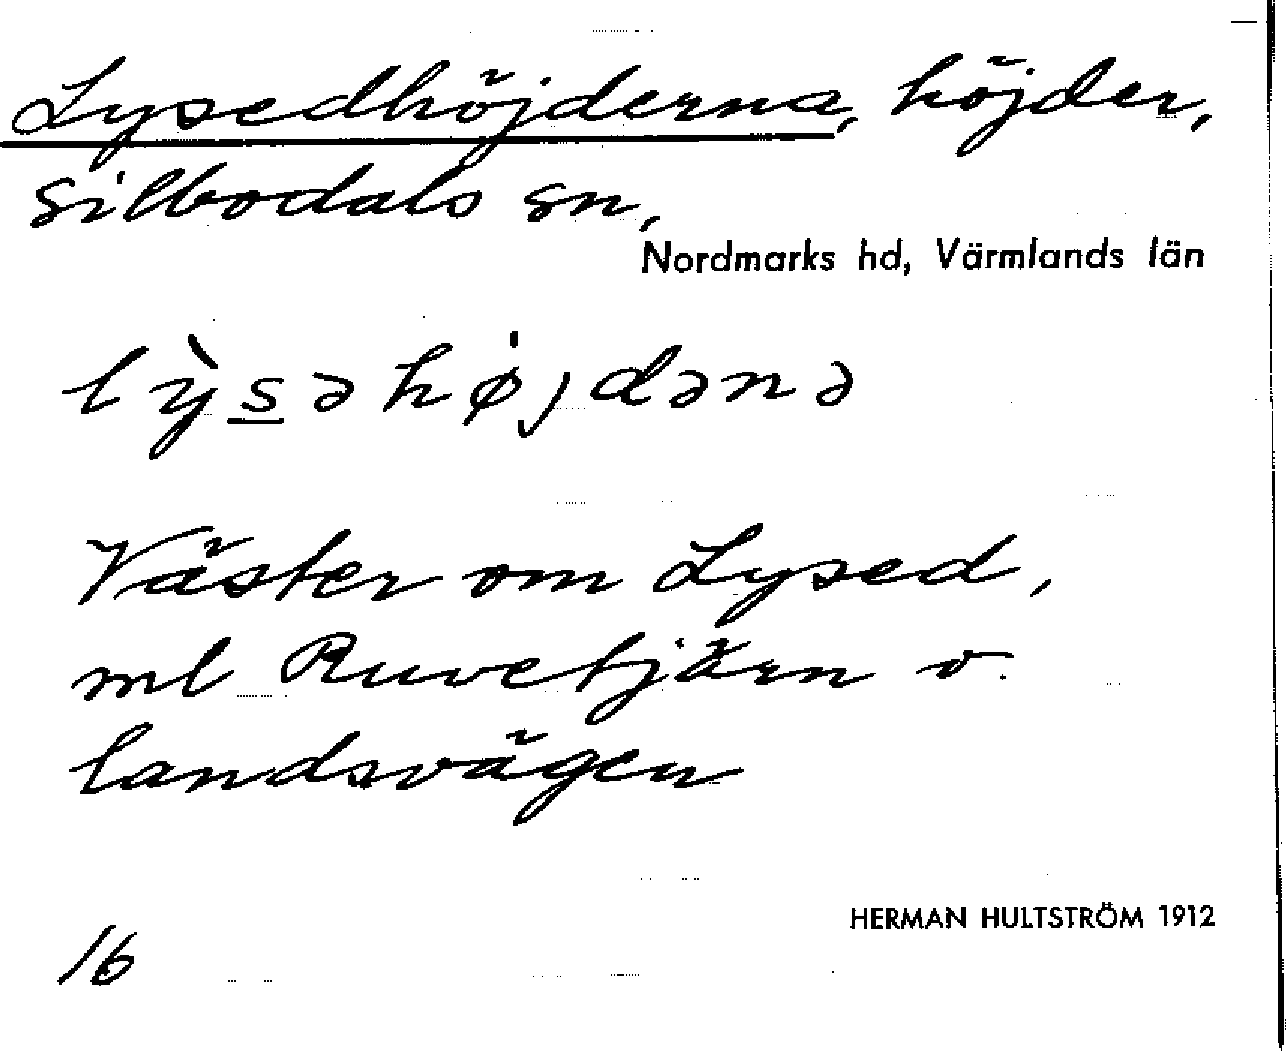 Lysedhöjderna, höjder,
Silbodals sn,
Nordmarks hd, Värmlands län
lỳsəhø̍jdənə
Väster om Lysed,
ml Ruvetjärn o.
landsvägen
HERMAN HULTSTRÖM 1912
16